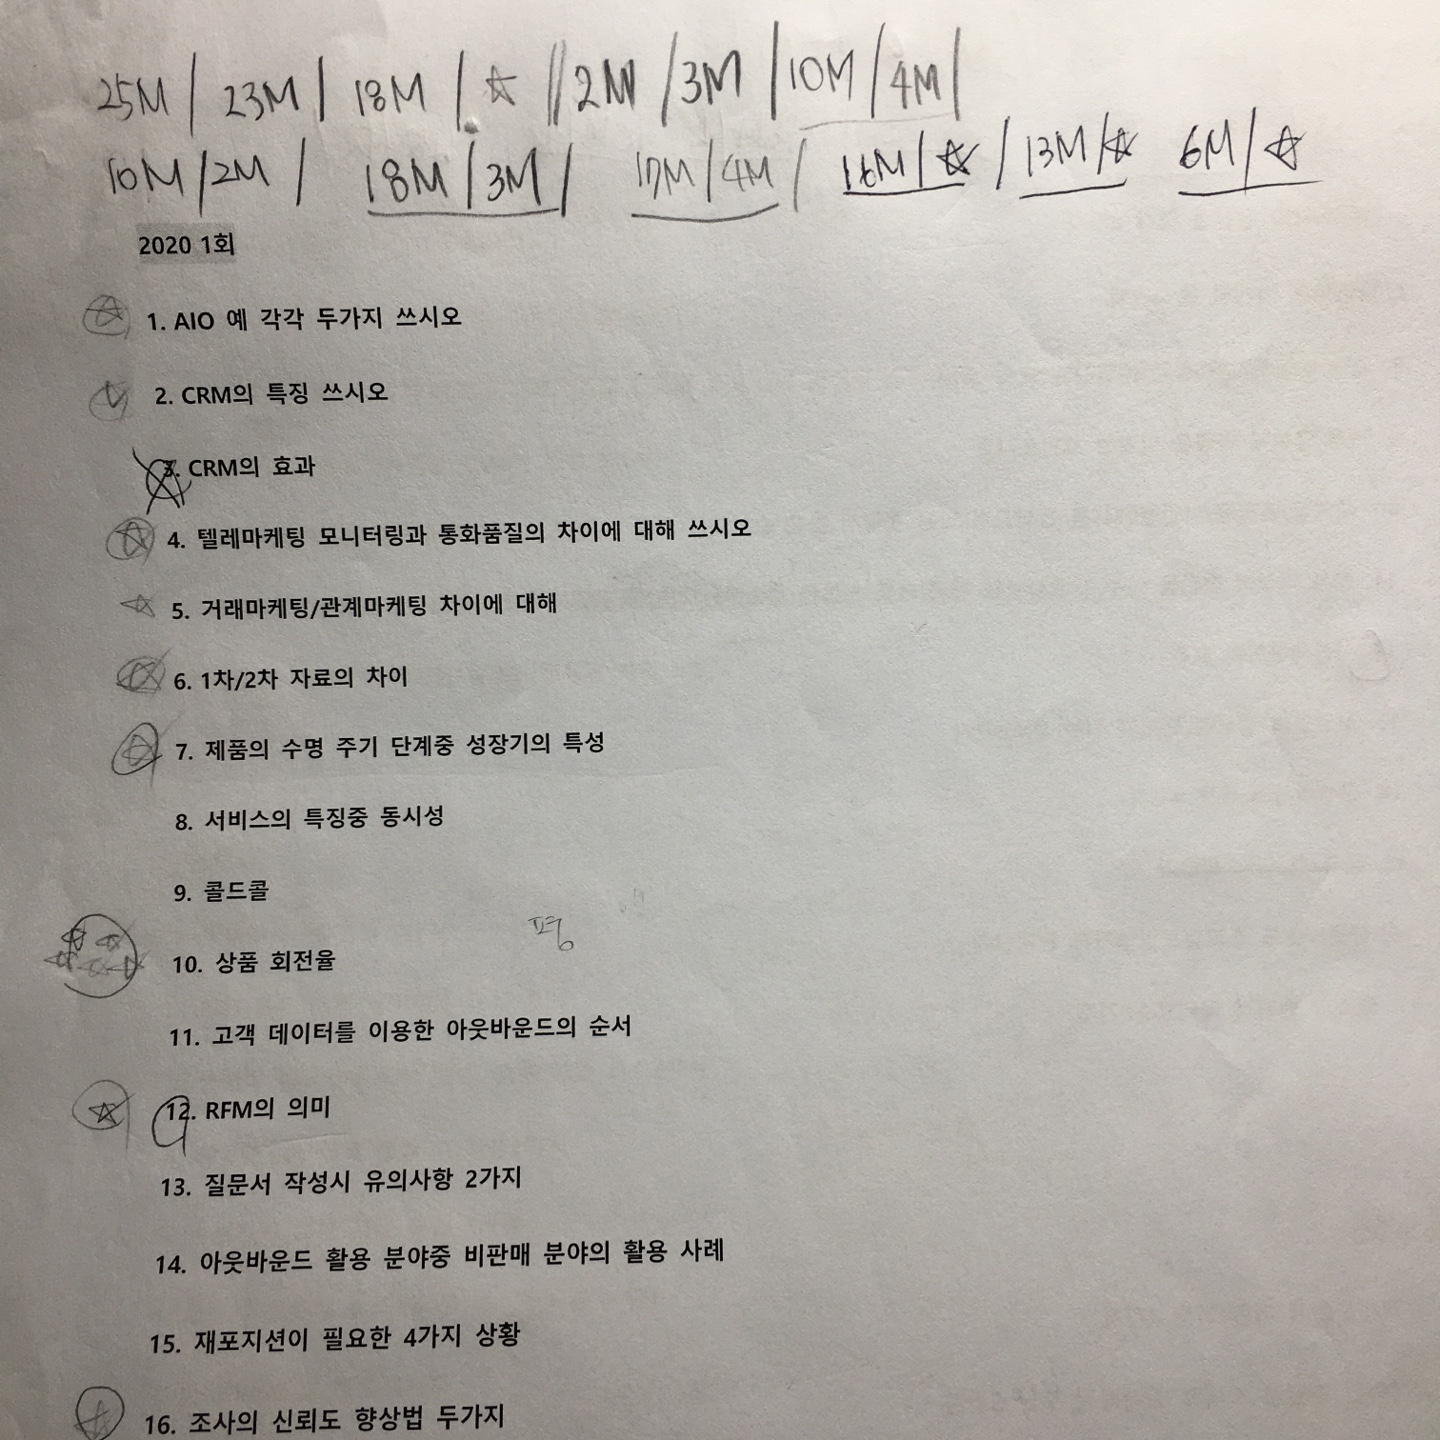 25M / 23M / 18M / ☆ // 2M / 3M / 10M / 4M /
10M / 2M / 18M / 3M / 17M / 4M / 16M / ☆ / 13M / ☆ 6M / ☆
2020 1회
1. AIO 예 각각 두가지 쓰시오
2. CRM의 특징 쓰시오
3. CRM의 효과
4. 텔레마케팅 모니터링과 통화품질의 차이에 대해 쓰시오
5. 거래마케팅/관계마케팅 차이에 대해
6. 1차/2차 자료의 차이
7. 제품의 수명 주기 단계중 성장기의 특성
8. 서비스의 특징중 동시성
9. 콜드콜
10. 상품 회전율
11. 고객 데이터를 이용한 아웃바운드의 순서
12. RFM의 의미
13. 질문서 작성시 유의사항 2가지
14. 아웃바운드 활용 분야중 비판매 분야의 활용 사례
15. 재포지션이 필요한 4가지 상황
16. 조사의 신뢰도 향상법 두가지